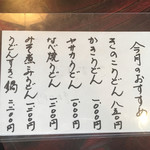 今月のおすすめ
きのこうどん 八五〇円
かきうどん 一、〇〇〇円
ヤサカうどん 一、〇〇〇円
なべ焼うどん 一、二〇〇円
みそ煮こみうどん 一、二〇〇円
うどんすき鍋 二、二〇〇円